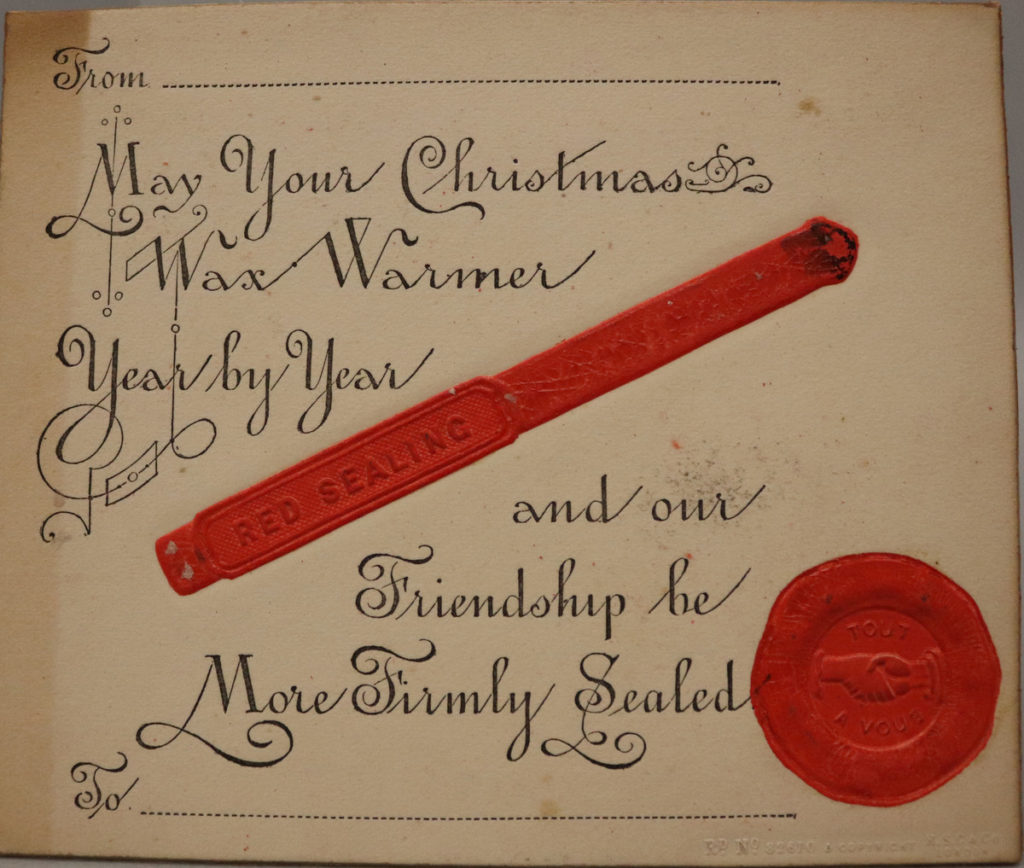 From
May Your Christmas
Wax Warmer
Year by Year
RED SEALING
and our
Friendship be
More Firmly Sealed
TOUT
A VOUS
To
RD No
COPYRIGHT